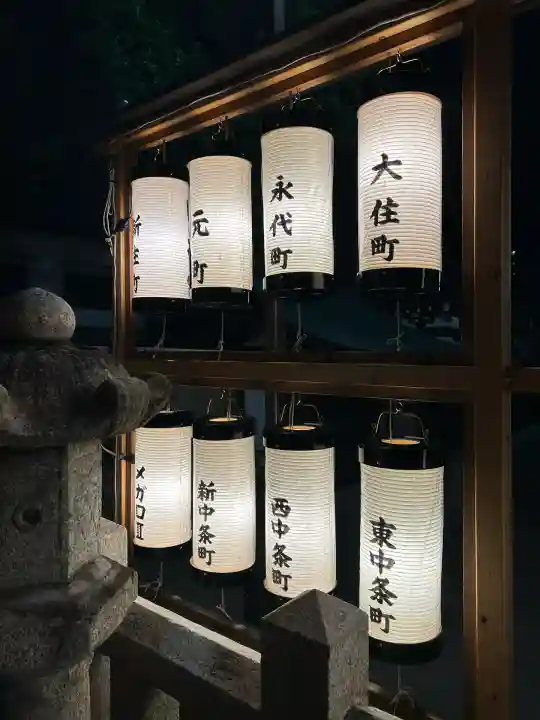 大住町
永代町
元町
新庄町
東中条町
西中条町
新中条町
メガロⅡ